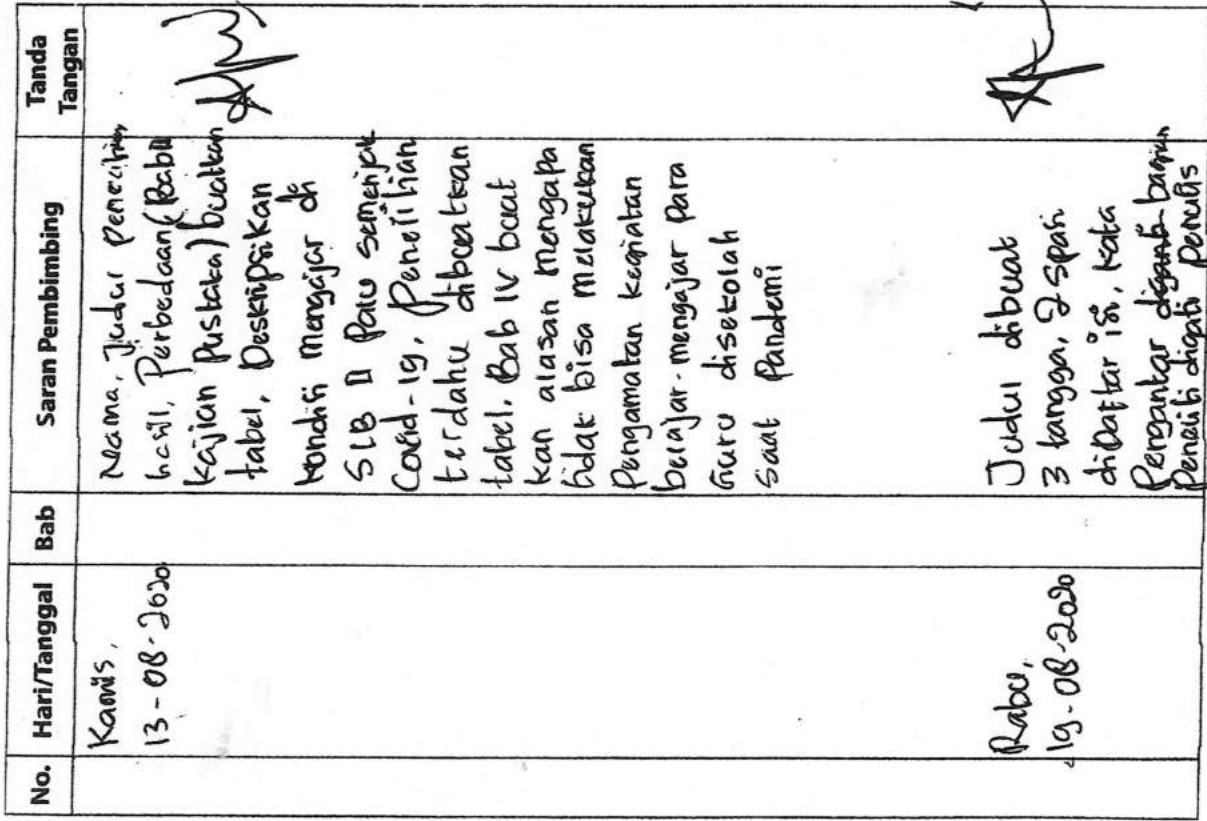 No. Hari/Tanggal Bab Saran Pembimbing Tanda Tangan
Kamis,
13-08-2020
Nama, Judul Penelitian
hasil, Perbedaan (Bab II
Kajian Pustaka) buatkan
tabel, Deskripsikan
Kondisi mengajar di
SLB II Palu semenjak
Covid-19, Penelitian
terdahu dibuatkan
tabel. Bab IV buat
kan alasan mengapa
tidak bisa melakukan
Pengamatan kegiatan
belajar-mengajar Para
Guru disekolah
Saat Pandemi
Rabu,
19-08-2020
Judul dibuat
3 tangga, 2 spasi
diDaftar isi, kata
Pengantar diganti bagian
Peneliti diganti Penulis